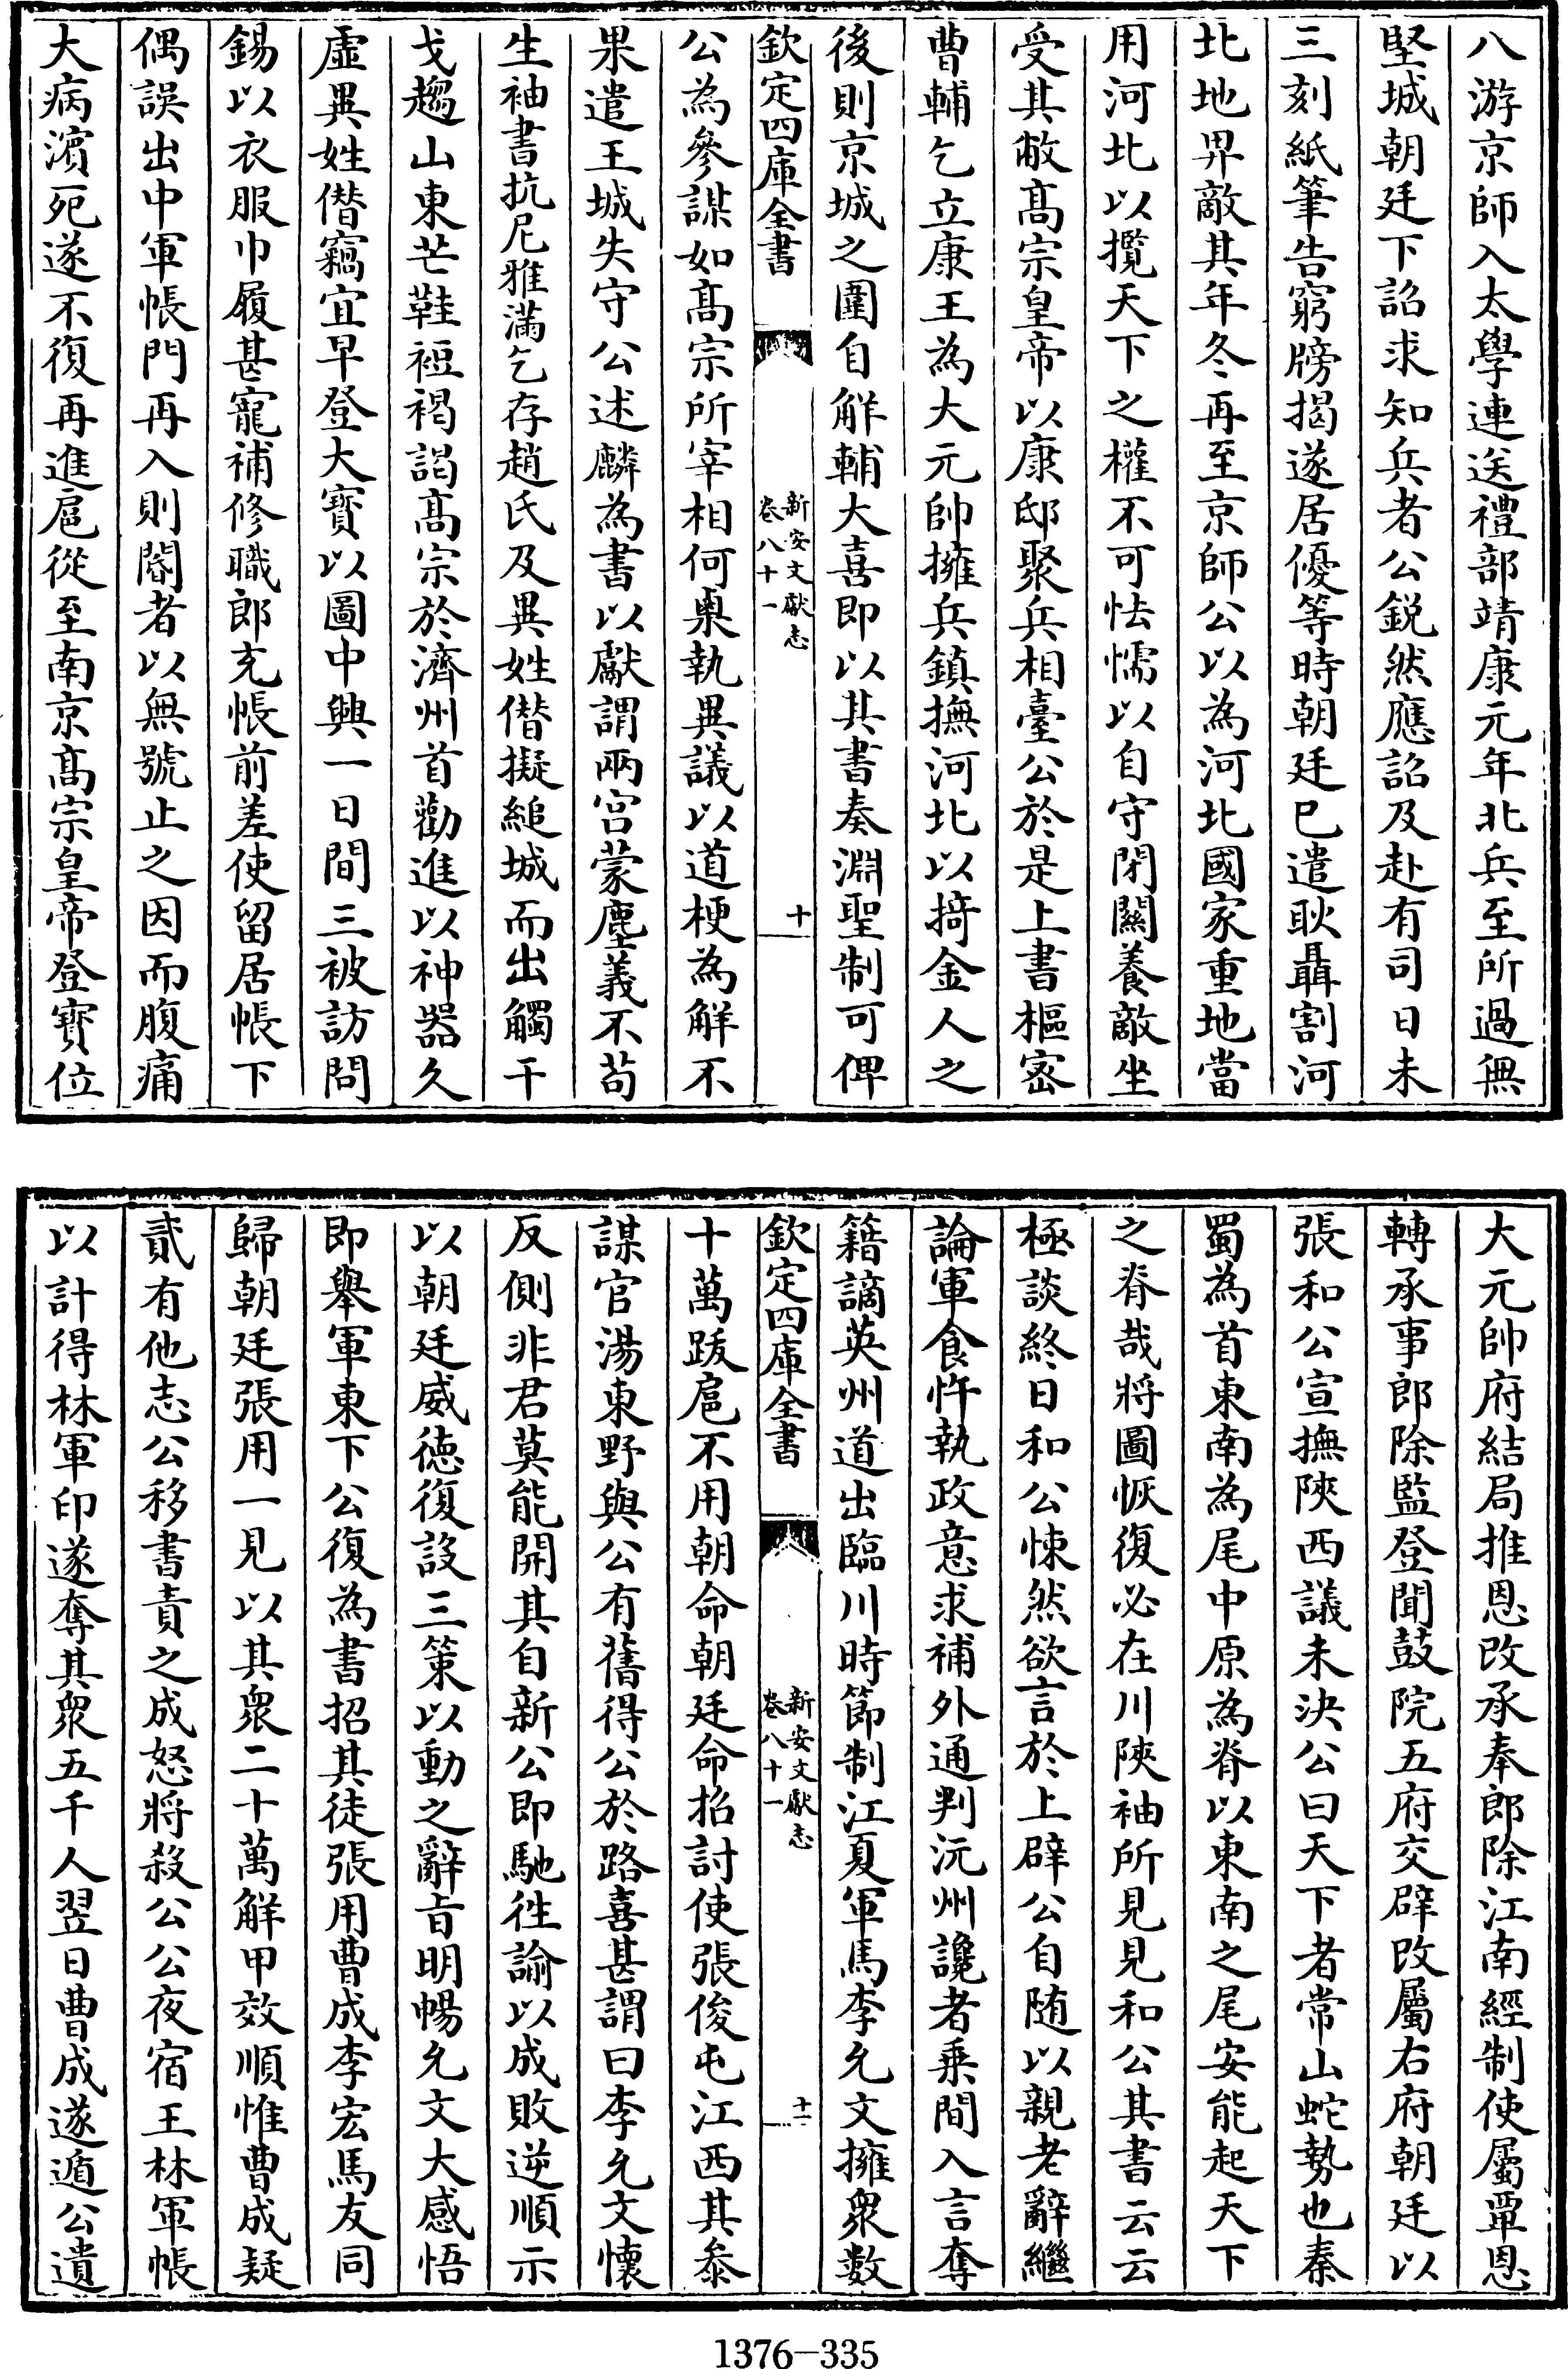 八游京師入太學連送禮部靖康元年北兵至所過無
堅城朝廷下詔求知兵者公鋭然應詔及赴有司日未
三刻紙筆告窮牓揭遂居優等時朝廷已遣耿聶割河
北地畀敵其年冬再至京師公以為河北國家重地當
用河北以攬天下之權不可怯懦以自守閉關養敵坐
受其敝髙宗皇帝以康邸聚兵相臺公於是上書樞宻
曹輔乞立康王為大元帥擁兵鎮撫河北以掎金人之
後則京城之圍自解輔大喜即以其書奏淵聖制可俾
欽定四庫全書
新安文獻志
卷八十一
十
公為參謀如髙宗所宰相何㮚執異議以道梗為解不
果遣王城失守公述麟為書以獻謂兩宫蒙塵義不苟
生袖書抗尼雅滿乞存趙氏及異姓僣擬縋城而出觸干
戈趨山東芒鞋裋褐謁髙宗於濟州首勸進以神器久
虛異姓僣竊宜早登大寳以圖中興一日間三被訪問
錫以衣服巾履甚寵補修職郎充帳前差使留居帳下
偶誤出中軍帳門再入則閽者以無號止之因而腹痛
大病濱死遂不復再進扈從至南京髙宗皇帝登寳位
大元帥府結局推恩改承奉郎除江南經制使屬覃恩
轉承事郎除監登聞鼓院五府交辟改屬右府朝廷以
張和公宣撫陜西議未決公曰天下者常山蛇勢也秦
蜀為首東南為尾中原為脊以東南之尾安能起天下
之脊哉將圖恢復必在川陜袖所見見和公其書云云
極談終日和公悚然欲言於上辟公自随以親老辭繼
論軍食忤執政意求補外通判沅州讒者乗間入言奪
籍謫英州道出臨川時節制江夏軍馬李允文擁衆數
欽定四庫全書
新安文獻志
卷八十一
十一
十萬跋扈不用朝命朝廷命招討使張俊屯江西其叅
謀官湯東野與公有舊得公於路喜甚謂曰李允文懷
反側非君莫能開其自新公即馳徃諭以成敗逆順示
以朝廷威徳復設三策以動之辭㫖明暢允文大感悟
即舉軍東下公復為書招其徒張用曹成李宏馬友同
歸朝廷張用一見以其衆二十萬解甲效順惟曹成疑
貳有他志公移書責之成怒將殺公公夜宿王林軍帳
以計得林軍印遂奪其衆五千人翌日曹成遂遁公遺
1376-335